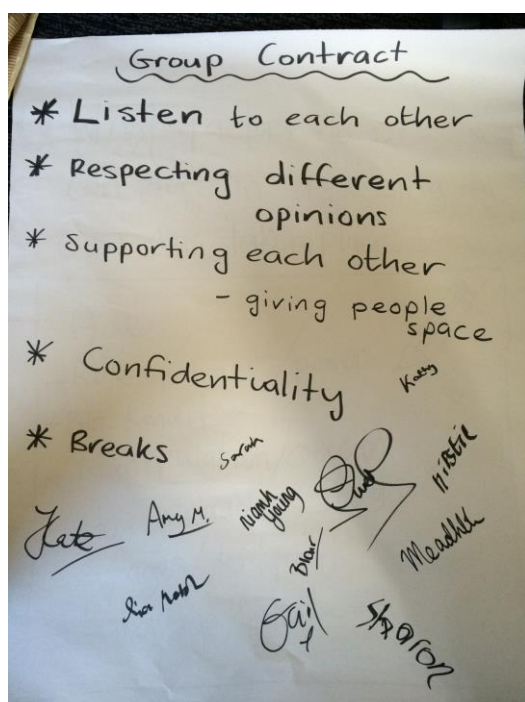 Group Contract
* Listen to each other
* Respecting different
opinions
* Supporting each other
- giving people
space
* Confidentiality
Kathy
* Breaks
Sarah
Kate
Amy M.
Niamh
Young
Blair
Gail
Sharon